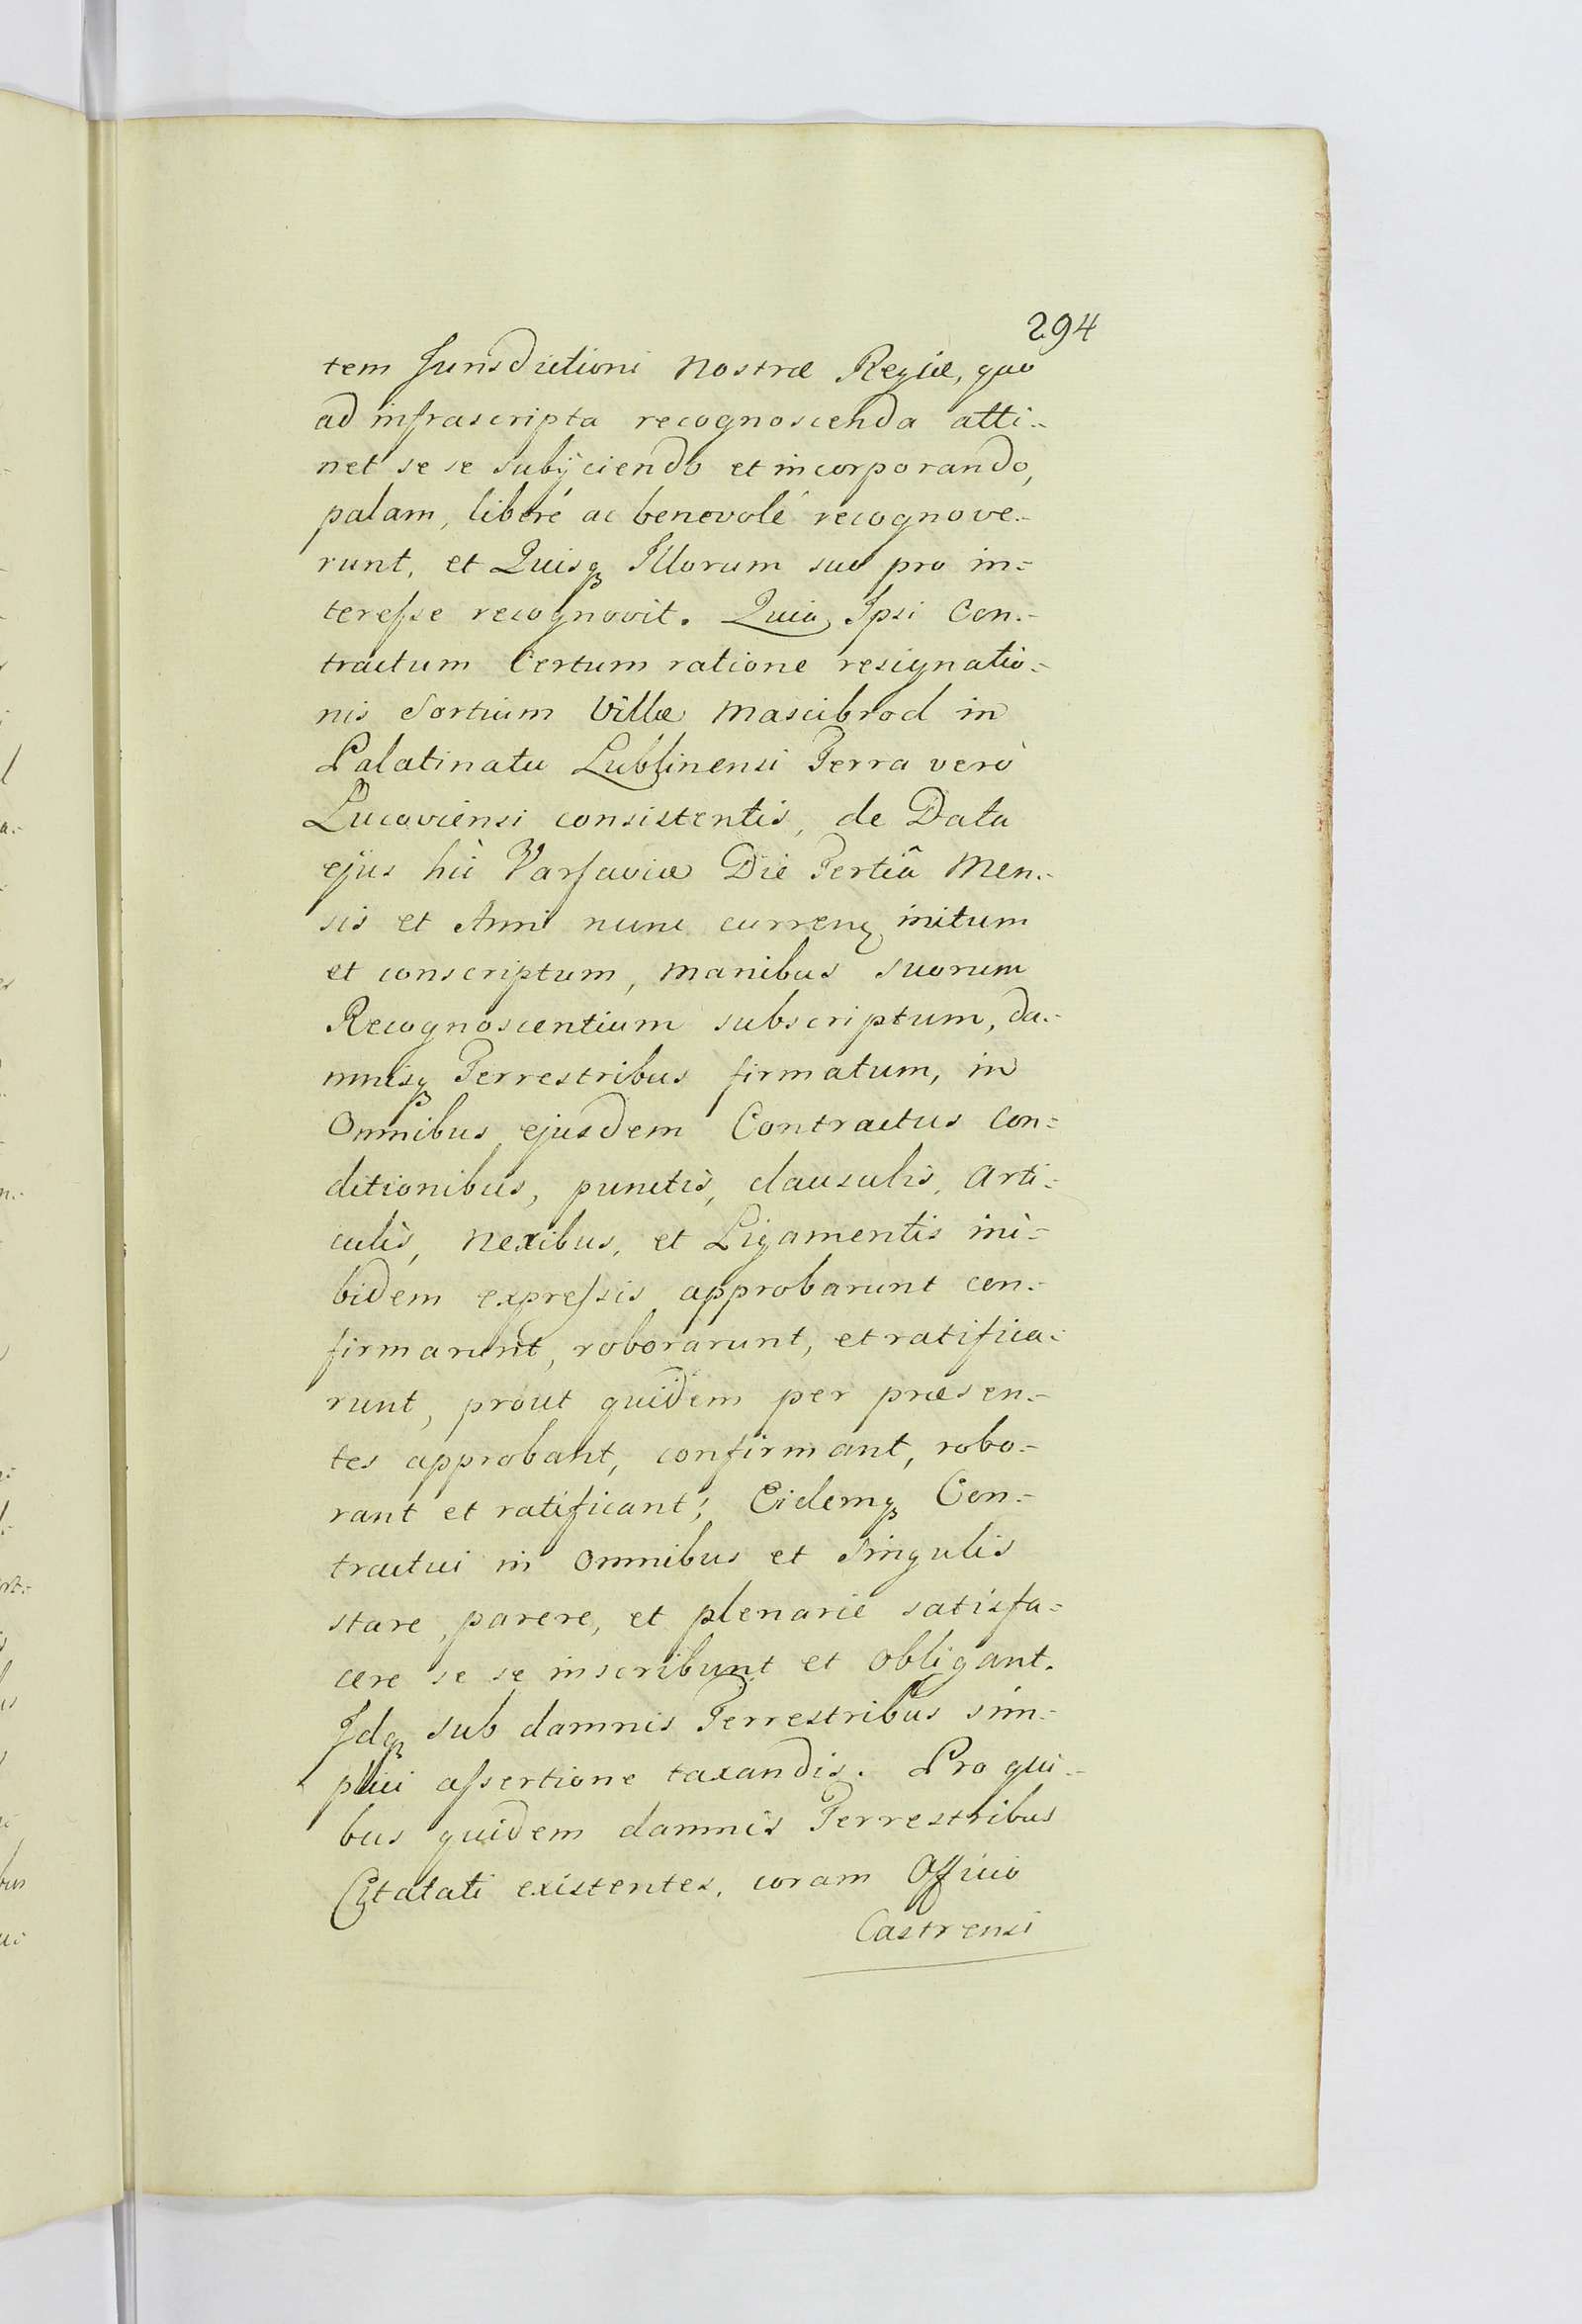 294
tem Jurisdictioni Nostræ Regiæ, quo
ad infrascripta recognoscenda atti=
net se se subijciendo et incorporando,
palam, liberé ac benevolé recognove=
runt, et Quisqꝫ Illorum suo pro in=
teresse recognovit. Quia Ipsi Con=
tractum Certum ratione resignatio=
nis Sortium Villæ Mascibrod in
Palatinatu Lublinensi Terra verò
Lucoviensi consistentis, de Data
ejus hìc Varsaviæ Die Tertiâ Men=
sis et Anni nunc curreñ initum
et conscriptum, manibus suorum
Recognoscentium subscriptum, da=
mnisqꝫ Terrestribus firmatum, in
Omnibus ejusdem Contractus Con=
ditionibus, punctis, clausulis, arti=
culis, Nexibus, et Ligamentis ini=
bidem expressis approbarunt con=
firmarunt, roborarunt, et ratifica=
runt, prout quidem per præsen=
tes approbant, confirmant, robo=
rant et ratificant; Eidemqꝫ Con=
tractui in Omnibus et Singulis
stare, parere, et plenarie satisfa=
cere se se inscribunt et obligant.
Idqꝫ sub damnis Terrestribus sim=
plici assertione taxandis. Pro qui=
bus quidem damnis Terrestribus
Citatati existentes, coram Officio
Castrensi